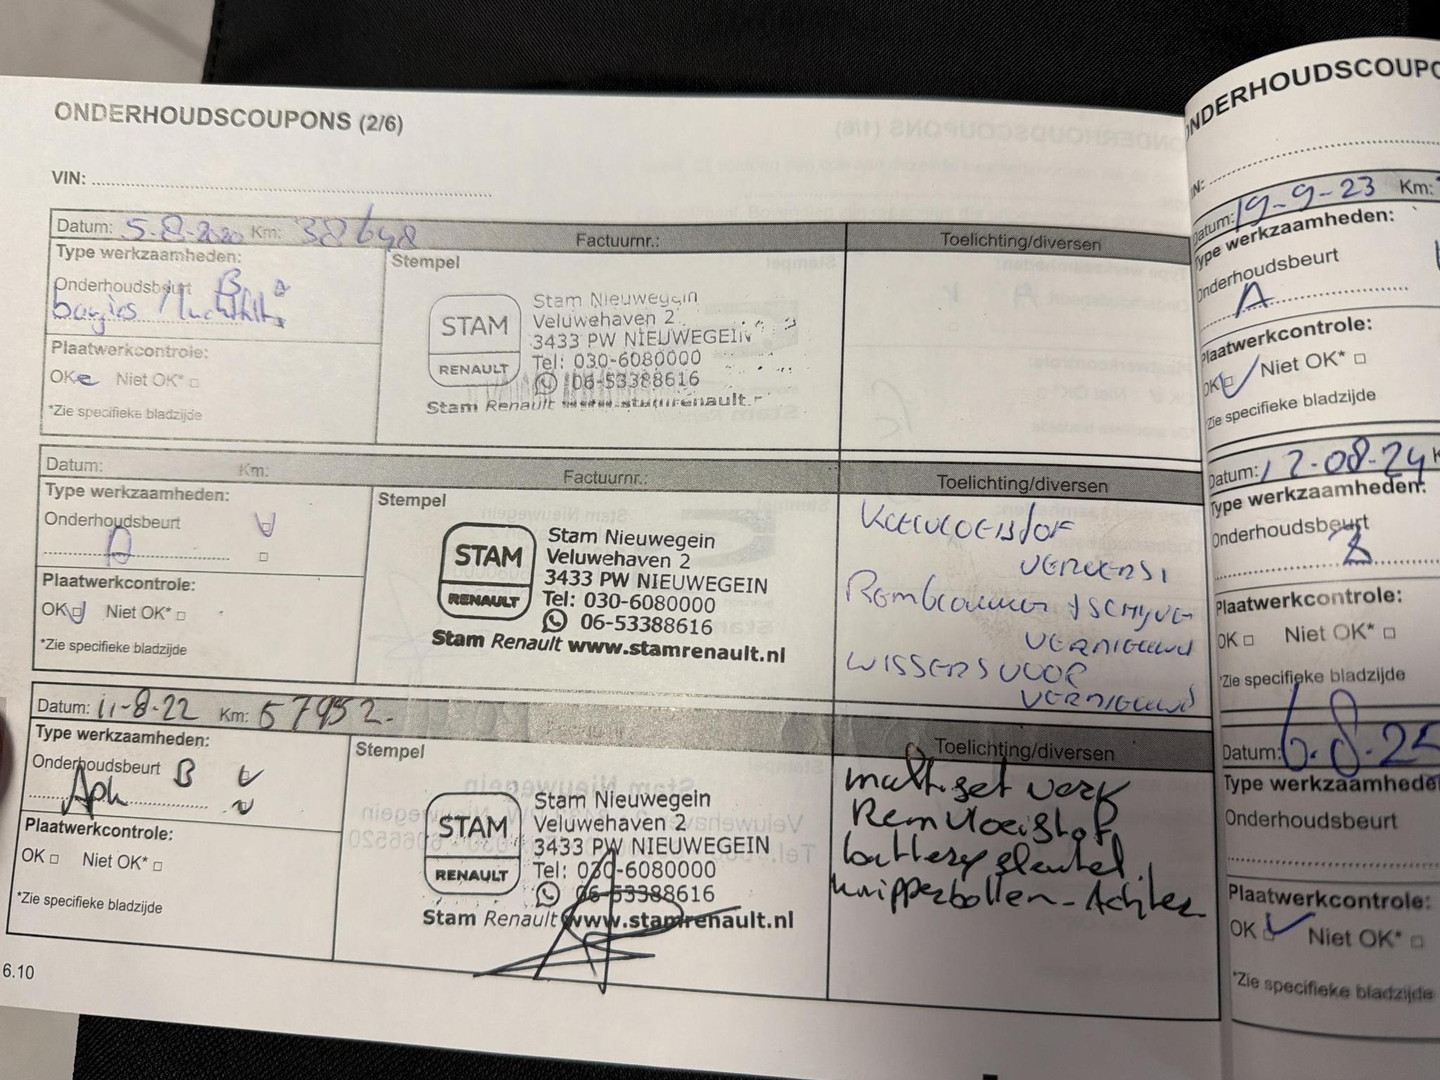 ONDERHOUDSCOUPONS (2/6)
VIN:
Datum: 5-8-2020 Km: 38648 Factuurnr.: Toelichting/diversen
Type werkzaamheden:
Onderhoudsbeurt B
bougies / luchtfilt.
Plaatwerkcontrole:
OK Niet OK*
*Zie specifieke bladzijde
Stempel
STAM
RENAULT
Stam Nieuwegein
Veluwehaven 2
3433 PW NIEUWEGEIN
Tel: 030-6080000
06-53388616
Stam Renault www.stamrenault.
Datum: Km: Factuurnr.: Toelichting/diversen
Type werkzaamheden:
Onderhoudsbeurt
A
Plaatwerkcontrole:
OK Niet OK*
*Zie specifieke bladzijde
Stempel
STAM
RENAULT
Stam Nieuwegein
Veluwehaven 2
3433 PW NIEUWEGEIN
Tel: 030-6080000
06-53388616
Stam Renault www.stamrenault.nl
KOELVLOEISTOF
VERVERST
Remblokken + SCHIJVEN
VERNIEUWD
WISSERS VOOR
VERNIEUWD
Datum: 11-8-22 Km: 57952- Factuurnr.: Toelichting/diversen
Type werkzaamheden:
Onderhoudsbeurt B
Apk
Plaatwerkcontrole:
OK Niet OK*
*Zie specifieke bladzijde
Stempel
STAM
RENAULT
Stam Nieuwegein
Veluwehaven 2
3433 PW NIEUWEGEIN
Tel: 030-6080000
06-53388616
Stam Renault www.stamrenault.nl
multi.set verf
Remvloeistof
battery sleutel.
knipperbollen - Achter
6.10
ONDERHOUDSCOUPO
Datum: 19-9-23 Km:
Type werkzaamheden:
Onderhoudsbeurt
A
Plaatwerkcontrole:
OK Niet OK*
*Zie specifieke bladzijde
Datum: 12-08-24 K
Type werkzaamheden:
Onderhoudsbeurt
Plaatwerkcontrole:
OK Niet OK*
*Zie specifieke bladzijde
Datum: 6.8.25
Type werkzaamhede
Onderhoudsbeurt
Plaatwerkcontrole:
OK Niet OK*
*Zie specifieke bladzijde